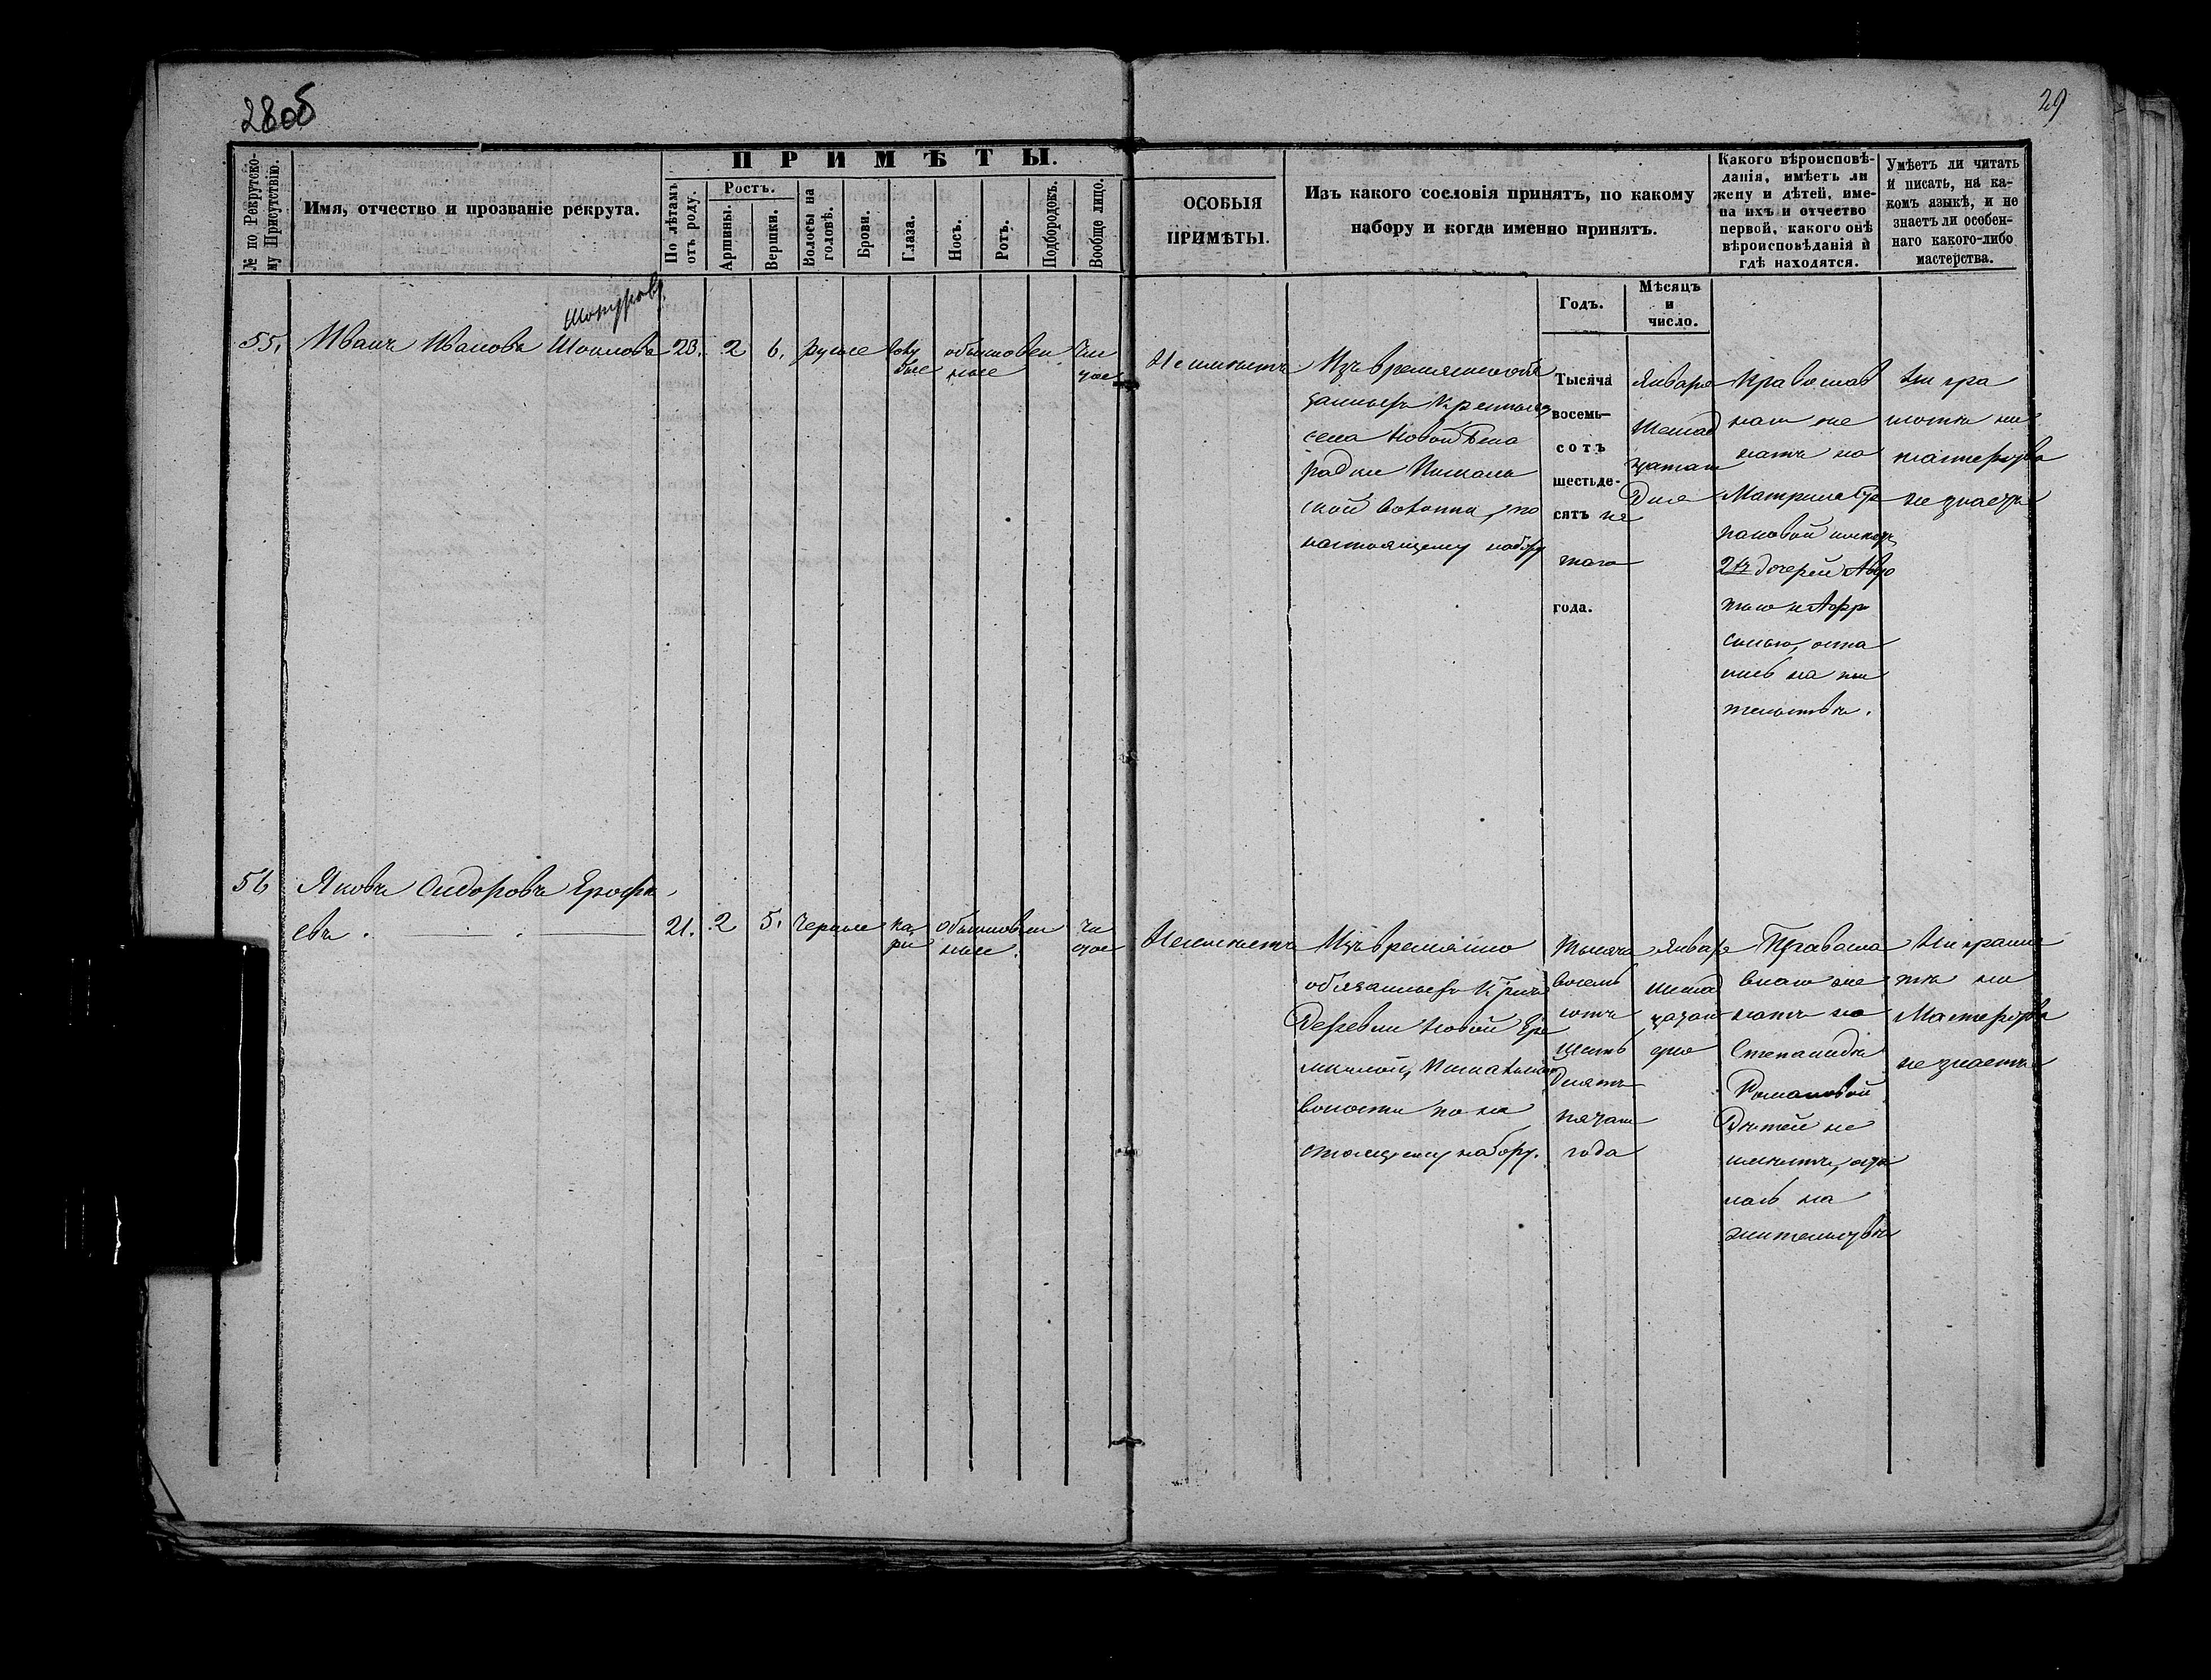 28об
29
№ по Рекрутско-
му Присутствію.
Имя, отчество и прозваніе рекрута.
ПРИМѢТЫ.
По лѣтамъ
отъ роду.
Ростъ.
Аршины.
Вершки.
Волосы на
головѣ.
Брови.
Глаза.
Носъ.
Ротъ.
Подбородокъ.
Вообще лицо.
ОСОБЫЯ
ПРИМѢТЫ.
Изъ какого сословія принятъ, по какому
набору и когда именно принятъ.
Какого вѣроисповѣ-
данія, имѣетъ ли
жену и дѣтей, име-
на ихъ и отчество
первой, какого онѣ
вѣроисповѣданія и
гдѣ находятся.
Умѣетъ ли читать
и писать, на ка-
комъ языкѣ, и не
знаетъ ли особен-
наго какого-либо
мастерства.
Годъ.
Мѣсяцъ
и
число.
55. Иванъ Ивановъ
23. 2 6. русые голу
бые
обыкновен
ные
чи
стое
Неимѣетъ
Изъ временнообя
занныхъ Крестьянъ
села Новой
по
настоящему набору
Тысяча
восемь-
сотъ
шестьде-
сятъ пя
таго
года.
Января
Шестнад
цатаго
Дня
Православ
наго же
натъ на
Матрене Сте
пановой имѣетъ
2хъ дочерей Авдо
тью и
оста
лись на жи
тельствѣ.
Ни гра
мотѣ ни
мастерства
не знаетъ
56 Яковъ Сидоровъ Ерофѣ
евъ.
21. 2 5. черные ка
ріи
обыкновен
ные.
чи
стое
Неимѣетъ
Изъ временно
обязанныхъ Крестьянъ
Деревни Новой Ере
волости по на
стоящему набору.
Тысяча
восемь
сотъ
шесть
десятъ
пятаго
года
Января
шестнад
цатаго
дня
Правосла
внаго же
натъ на
Степанидѣ
Романовой
Дѣтей не
имѣетъ, оста
лась на
жительствѣ
Ни грамо
тѣ ни
Мастерства
не знаетъ